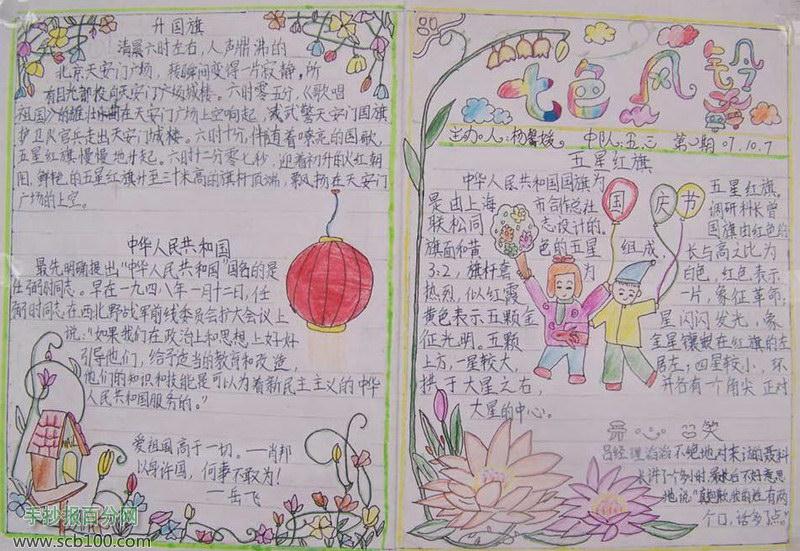 升国旗
清晨六时左右,人声鼎沸的
北京天安门广场,转瞬间变得一片寂静。所
有目光都投向天安门广场城楼。六时零五分,《歌唱
祖国》的雄壮乐曲在天安门广场上空响起,武警天安门国旗
护卫队官兵走出天安门城楼。六时十分,伴随着嘹亮的国歌,
五星红旗慢慢地升起。六时十二分零七秒,迎着初升的火红朝
阳,鲜艳的五星红旗升至三十米高的旗杆顶端,飘扬在天安门
广场的上空。
中华人民共和国
最先明确提出"中华人民共和国"国名的是
任弼时同志。早在一九四八年一月十二日,任
弼时同志在西北野战军前线委员会扩大会议上
说:"如果我们在政治上和思想上好好
引导他们,给予适当的教育和改造,
他们的知识和技能是可以为着新民主主义的中华
人民共和国服务的。"
爱祖国高于一切。—肖邦
以身许国,何事不敢为!
—岳飞
七色风铃
主办人:杨馨媛 中队:五三 第 期 07.10.7
五星红旗
中华人民共和国国旗为 五星红旗,
是由上海 市合作总社 调研科长曾
联松同 志设计的, 国旗由红色的
旗面和黄 色的五星 组成,长与高之比为
3:2,旗杆套 为 白色,红色表示
热烈,似红霞 一片,象征革命;
黄色表示五颗金 星闪闪发光,象
征光明。五颗 金星镶嵌在红旗的左
上方,一星较大, 居左;四星较小,环
拱于大星之右, 并各有一个角尖正对
大星的中心。
国 庆 节
笑
吕经理滔滔不绝地对来访的
地说:"真
个口,话多了点。"
手抄报百分网
www.scb100.com